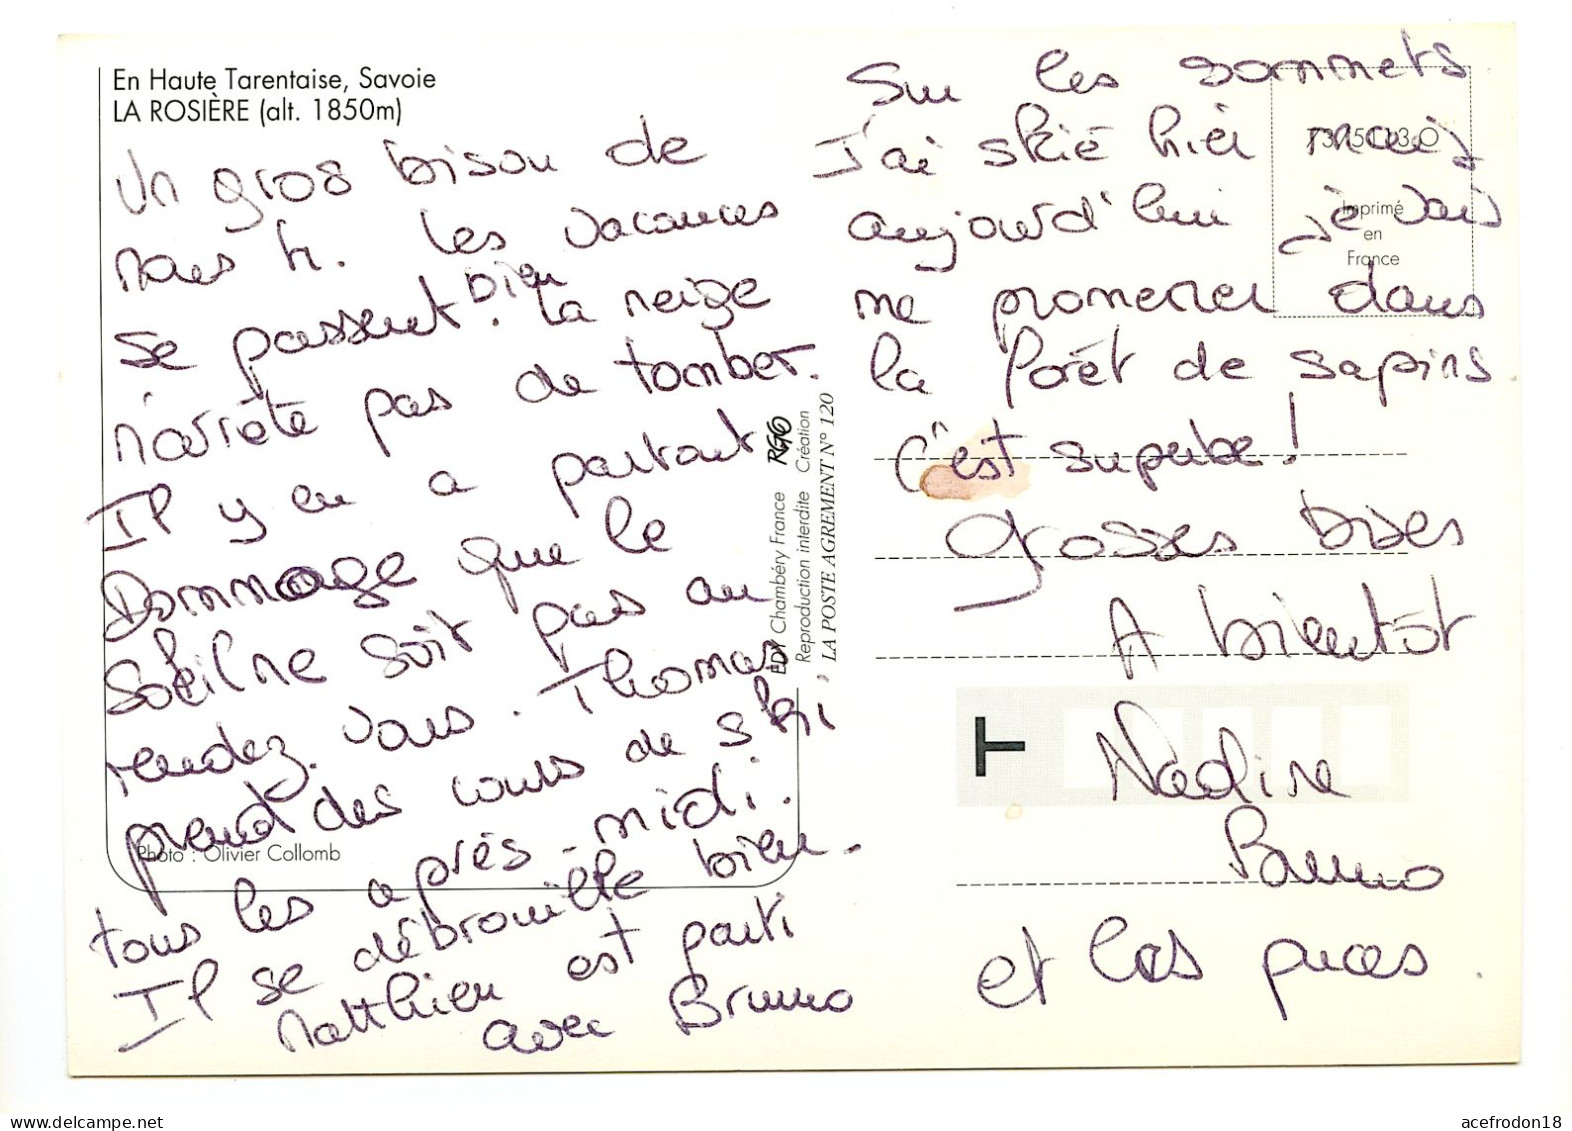 En Haute Tarentaise, Savoie
LA ROSIÈRE (alt. 1850m)
Un gros bisou de
nous 4. Les vacances
se passent bien. La neige
n'arrête pas de tomber.
Il y en a partout
Dommage que le
soleil ne soit pas au
rendez-vous. Thomas
prend des cours de ski
tous les après-midi.
Il se débrouille bien.
Matthieu est parti
avec Bruno
Photo : Olivier Collomb
EDY Chambéry France
Reproduction interdite Création
LA POSTE AGREMENT N° 120
Sur les sommets
J'ai skié hier mais
aujourd'hui je vais
me promener dans
la forêt de sapins
c'est superbe!
Grosses bises
A bientôt
Nadine
Bruno
et les puces.
Imprimé
en
France
T
acefrodon18